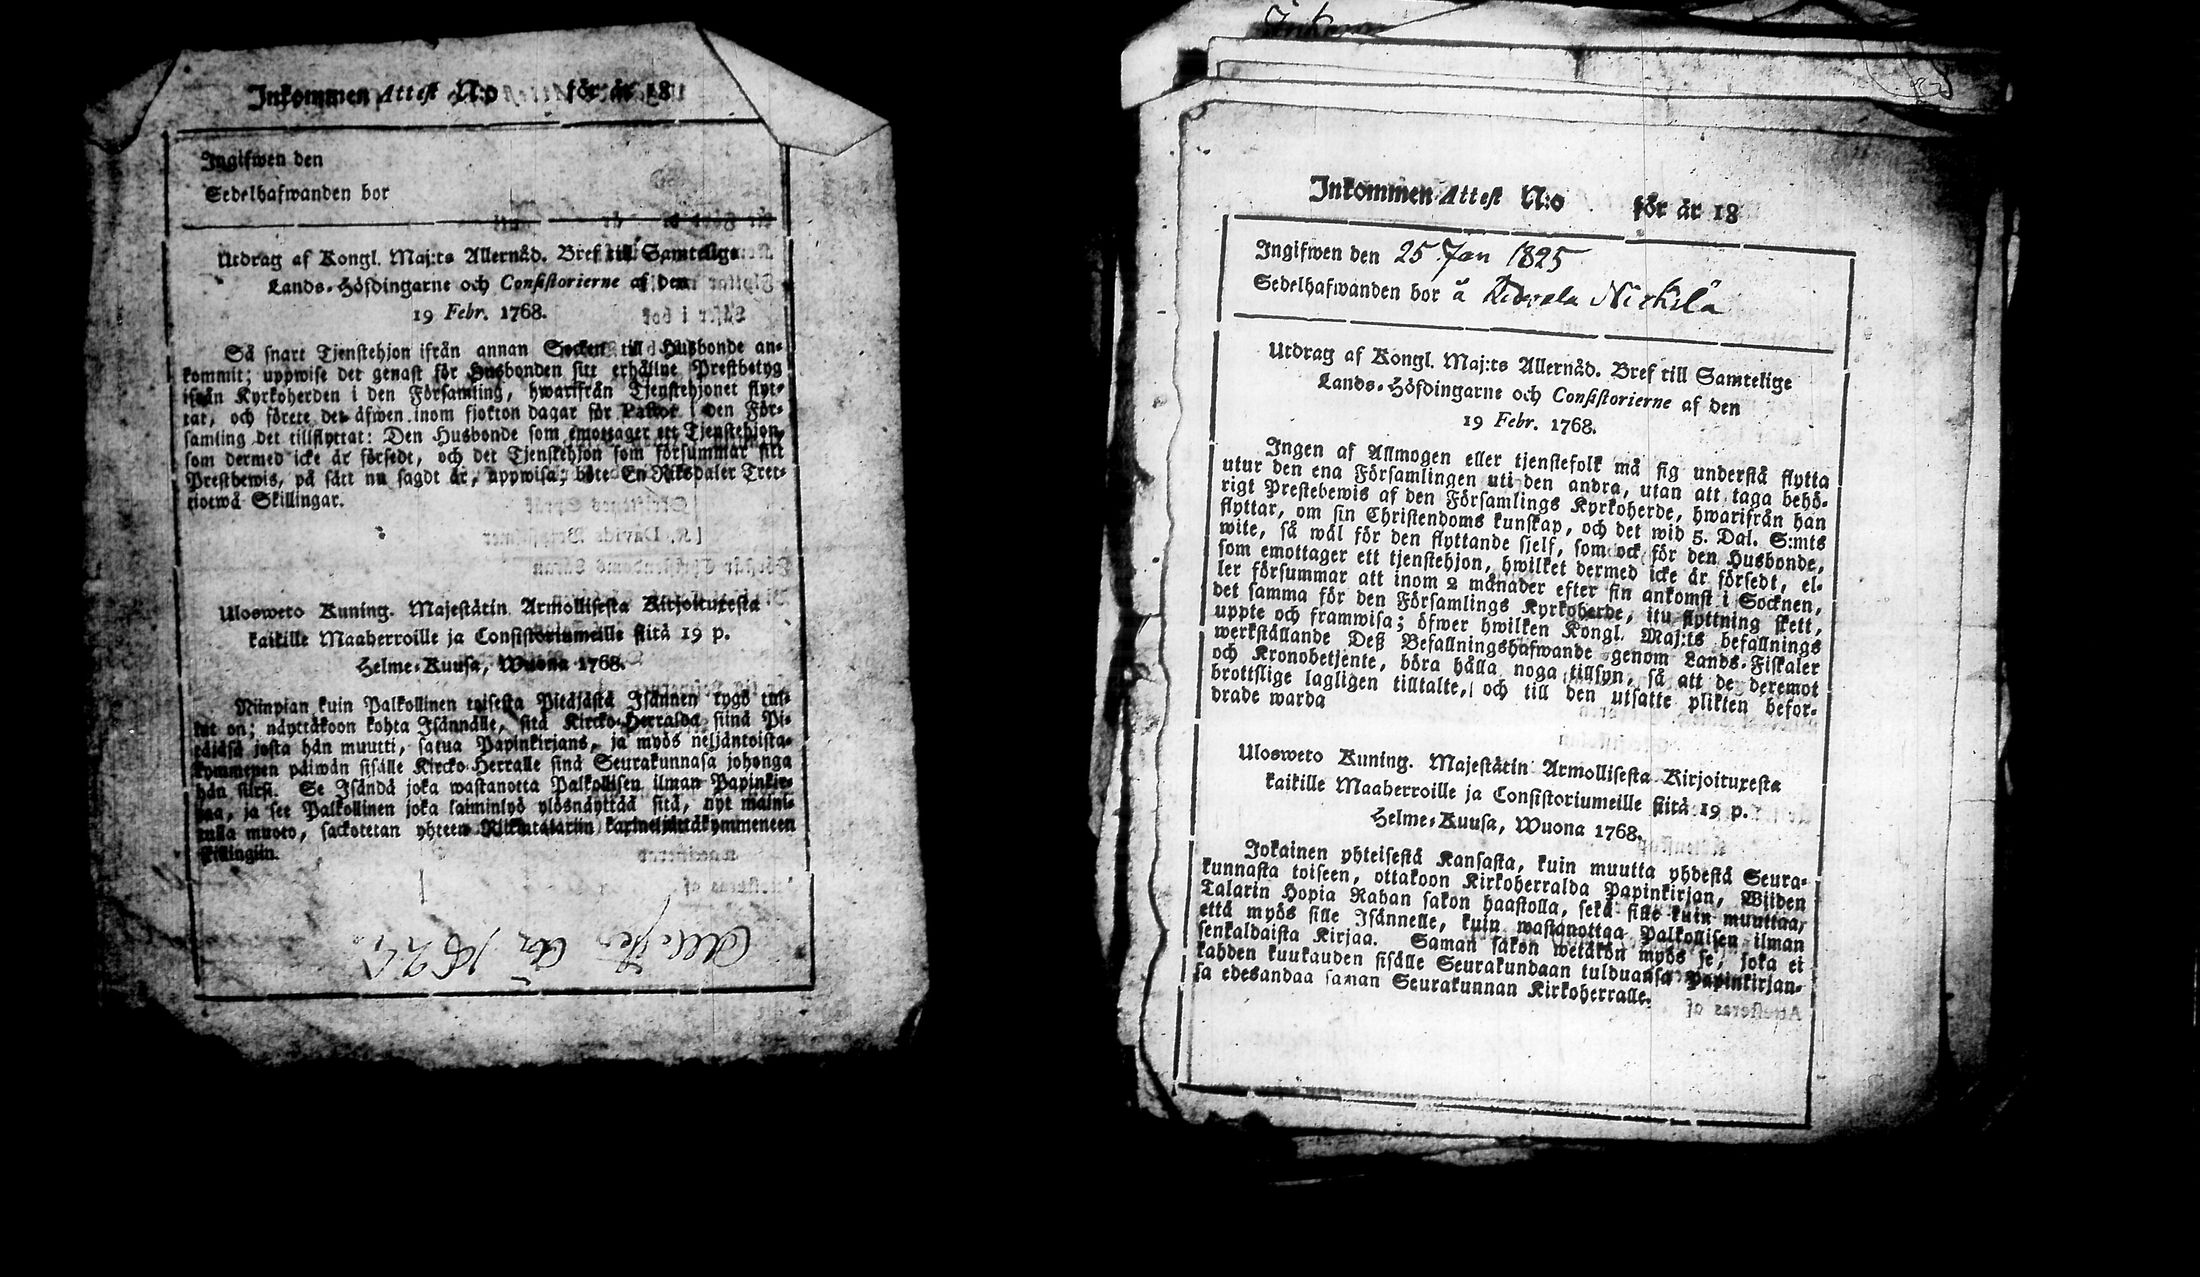 Inkommen Attest N:o för år 18
Ingifwen den
Sedelhafwanden bor
Utdrag af Kongl. Maj:ts Allernåd. Bref till Samtelige
Lands-Höfdingarne och Consistorierne af den
19 Febr. 1768.
Så snart Tjenstehjon ifrån annan Socken till Husbonde an-
kommit; uppwise det genast för Husbonden sitt erhållne Prestbetyg
ifrån Kyrkoherden i den Församling, hwarifrån Tjenstehjonet flyt-
tat, och förete det äfwen inom fjorton dagar för Pastor i den För-
samling det tillflyttat: Den Husbonde som emottager ett Tjenstehjon,
som dermed icke är försedt, och det Tjenstehjon som försummar sitt
Prestbewis, på sätt nu sagdt är, uppwisa; böte En Riksdaler Tret-
tiotwå Skillingar.
Ulosweto Kuning. Majestätin Armollisesta Kirjoituxesta
kaikille Maaherroille ja Consistoriumeille siitä 19 p.
Helme-Kuusa, Wuona 1768.
Niinpian kuin Palkollinen toisesta Pitäjästä Isännen tygö tul-
lut on; näyttäkoon kohta Isännälle, sitä Kircko-Herralda siinä Pi-
täjäsä josta hän muutti, saatua Papinkirjans, ja myös neljäntoista-
kymmenen päiwän sisälle Kircko-Herralle siinä Seurakunnasa johonga
hän siirsi. Se Isändä joka wastanotta Palkollisen ilman Papinkir-
jaa, ja see Palkollinen joka laiminlyö ylösnäyttää sitä, nyt maini-
tulla muoto, sackotetan yhteen Rikintalariin kaxineljättäkymmeneen
skillingiin.
Attester År 1825.
Inkommen Attest N:o för år 18
Ingifwen den 25 Jan 1825
Sedelhafwanden bor å Nickilä
Utdrag af Kongl. Maj:ts Allernåd. Bref till Samtelige
Lands-Höfdingarne och Consistorierne af den
19 Febr. 1768.
Ingen af Allmogen eller tjenstefolk må sig understå flytta
utur den ena Församlingen uti den andra, utan att taga behö-
rigt Prestebewis af den Församlings Kyrkoherde, hwarifrån han
flyttar, om sin Christendoms kunskap, och det wid 5. Dal. S:mts
wite, så wäl för den flyttande sjelf, som ock för den Husbonde,
som emottager ett tjenstehjon, hwilket dermed icke är försedt, el-
ler försummar att inom 2 månader efter sin ankomst i Socknen,
det samma för den Församlings Kyrkoherde, itu flyttning skett,
uppte och framwisa; öfwer hwilken Kongl. Maj:ts befallnings
werkställande Deß Befallningshafwande genom Lands-Fiskaler
och Kronobetjente, böra hålla noga tillsyn, så att de deremot
brottslige lagligen tilltalte, och till den utsatte plikten befor-
drade warda
Ulosweto Kuning. Majestätin Armollisesta Kirjoituxesta
kaikille Maaherroille ja Consistoriumeille siitä 19 p.
Helme-Kuusa, Wuona 1768.
Jokainen yhteisestä Kansasta, kuin muutta yhdestä Seura-
kunnasta toiseen, ottakoon Kirkoherralda Papinkirjan, Wijden
Talarin Hopia Rahan sakon haastolla, sekä sille kuin muuttaa,
että myös sille Isännelle, kuin wastanottaa Palkollisen ilman
senkaldaista Kirjaa. Saman sakon wetäkön myös se, joka ei
kahden kuukauden sisälle Seurakundaan tulduansa Papinkirjan-
sa edesandaa saman Seurakunnan Kirkoherralle.